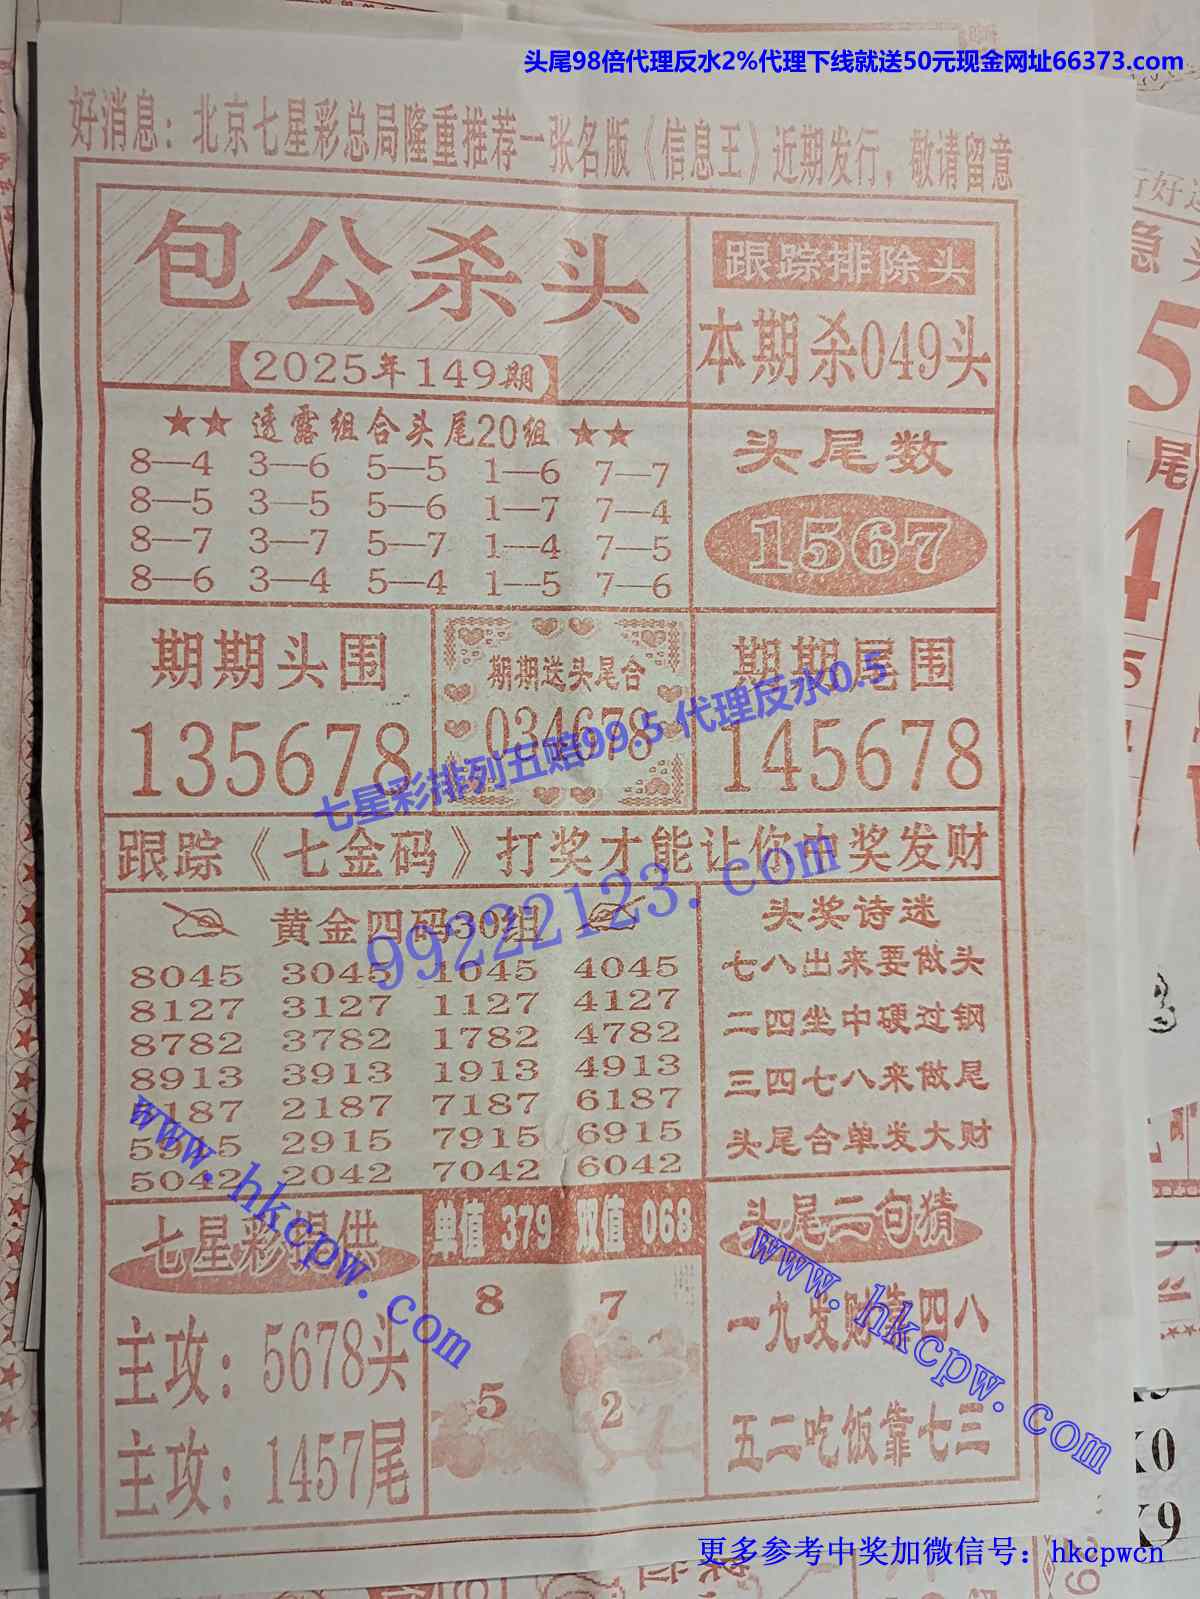 头尾98倍代理反水2%代理下线就送50元现金网址66373.com
好消息：北京七星彩总局隆重推荐一张名版《信息王》近期发行，敬请留意
包公杀头
2025年149期
跟踪排除头
本期杀049头
★★ 透露组合头尾20组 ★★
8—4 3—6 5—5 1—6 7—7
8—5 3—5 5—6 1—7 7—4
8—7 3—7 5—7 1—4 7—5
8—6 3—4 5—4 1—5 7—6
头尾数
1567
期期头围
135678
期期送头尾合
034678
期期尾围
145678
七星彩排列五赔99.5 代理反水0.5
跟踪《七金码》打奖才能让你中奖发财
99222123.com
黄金四码30组
8045 3045 1045 4045
8127 3127 1127 4127
8782 3782 1782 4782
8913 3913 1913 4913
5187 2187 7187 6187
5915 2915 7915 6915
5042 2042 7042 6042
头奖诗迷
七八出来要做头
二四坐中硬过钢
三四七八来做尾
头尾合单发大财
www.hkcpw.com
七星彩提供
主攻：5678头
主攻：1457尾
单值 379 双值 068
8 7
5 2
头尾二句猜
一九发财靠四八
五二吃饭靠七三
www.hkcpw.com
更多参考中奖加微信号：hkcpwcn
急头
5
尾
4
5
K0
K9